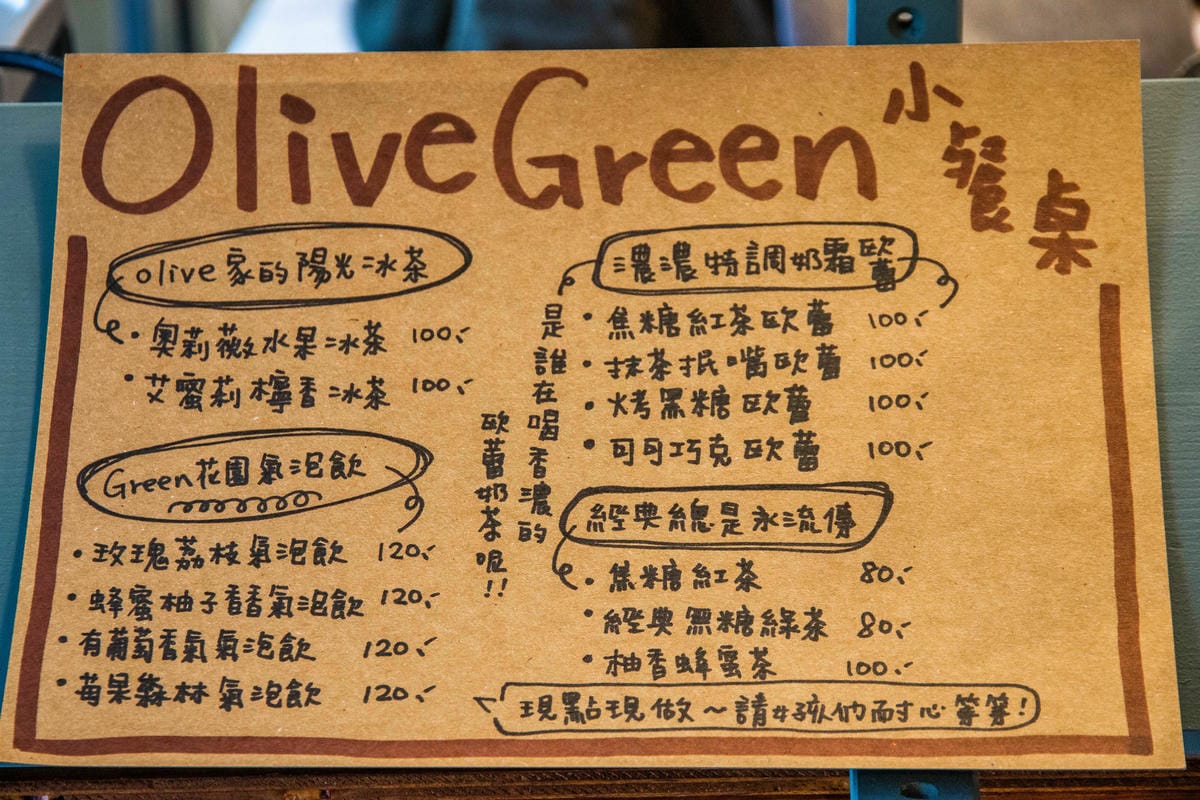 OliveGreen 小餐桌
olive家的陽光冰茶
・奧莉薇水果冰茶 100.-
・艾蜜莉檸香冰茶 100.-
Green花園氣泡飲
・玫瑰荔枝氣泡飲 120.-
・蜂蜜柚子香香氣泡飲 120.-
・有葡萄香氣氣泡飲 120.-
・莓果森林氣泡飲 120.-
是誰在喝香濃的
歐蕾奶茶呢!!
濃濃特調奶霜歐蕾
・焦糖紅茶歐蕾 100.-
・抹茶抿嘴歐蕾 100.-
・烤黑糖歐蕾 100.-
・可可巧克歐蕾 100.-
經典總是永流傳
・焦糖紅茶 80.-
・經典無糖綠茶 80.-
・柚香蜂蜜茶 100.-
現點現做～請女孩們耐心等等!